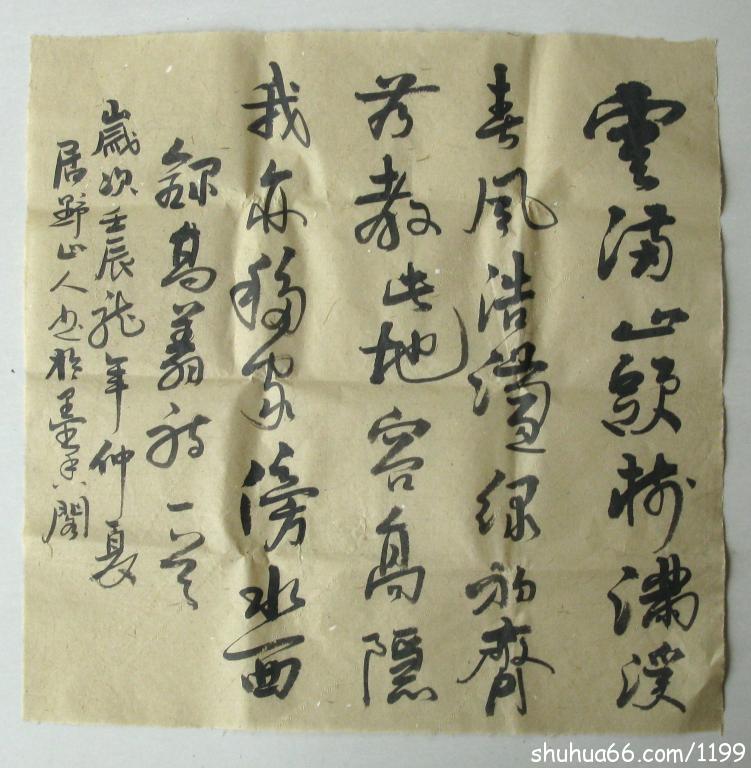 雲滿山頭樹滿溪
春風浩蕩綠初齊
若教此地容高隱
我亦移家傍水西
錄高翥詩一首
歲次壬辰龍年仲夏
居野山人書於墨香閣
shuhua66.com/1199